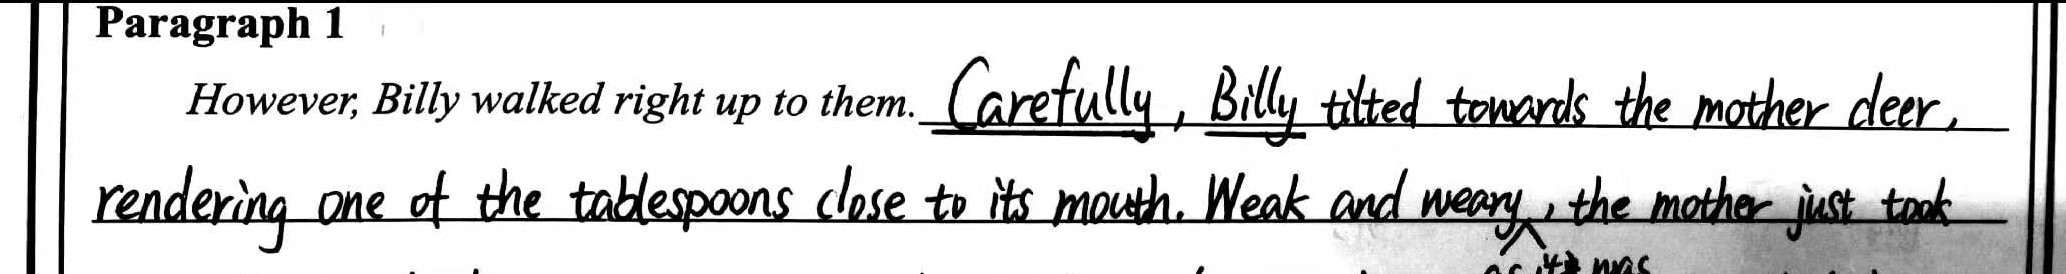 Paragraph 1
However, Billy walked right up to them. Carefully, Billy tilted towards the mother deer,
rendering one of the tablespoons close to its mouth. Weak and weary, the mother just took
as it was